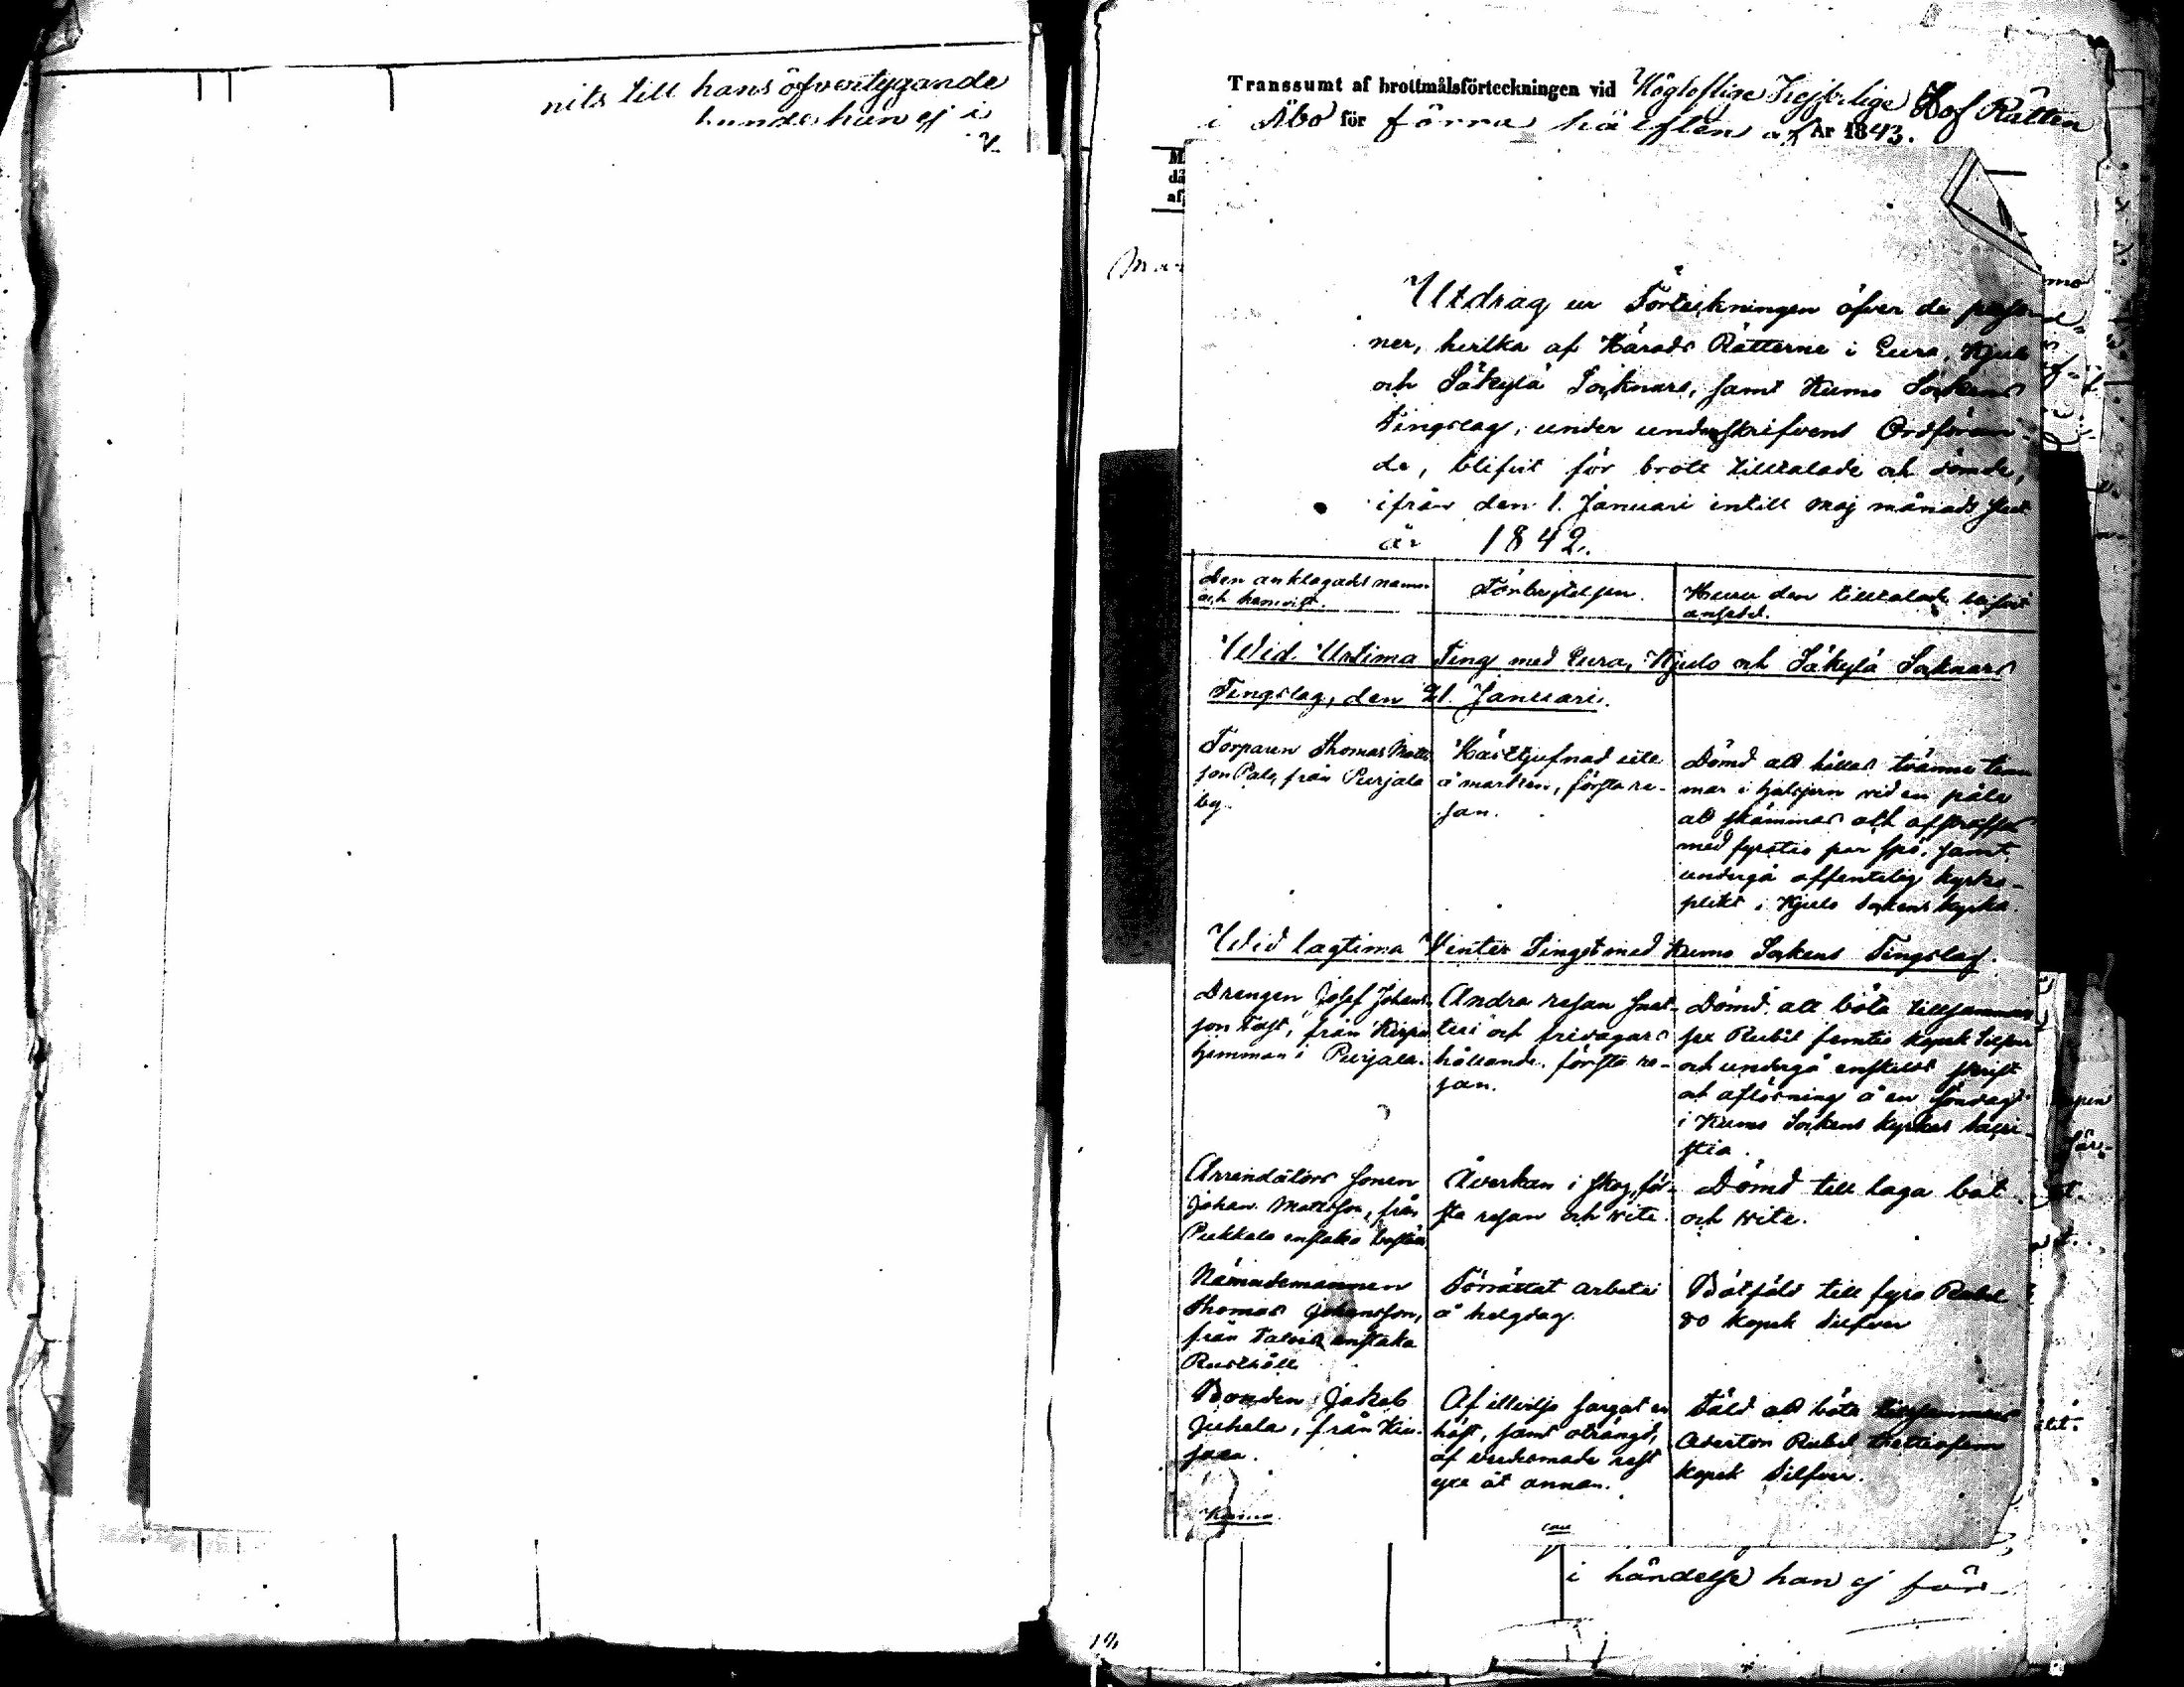 nits till hans öfvertygande
kunde han ej i
Transsumt af brottmålsförteckningen vid Högloflige Kejserlige Hof Rätten
i Åbo för förra hälften af år 1843.
Utdrag ur Förteckningen öfver de perso
ner, hvilka af Härads Rätterne i Eura, Kjulo
och Säkylä Soknars, samt Kumo Sokens
Tingslag, under undertskrifvens Ordföran-
de, blifvit för brott tilltalade och dömde,
ifrån den 1. Januari intill Maj månads slut
år 1842.
Den anklagades namn
och hemvist.
Förbrytelsen.
Huru den tilltalade blifvit
ansedd.
Wid Urtima Ting med Eura, Kjulo och Säkylä Soknars
Tingslag, den 21. Januari.
Torparen Thomas Matts
son Pala, från Purjala
by.
Hästtjufnad ute
å marken, första re-
san.
Dömd att hållas tvänne tim
mar i halsjern vid en påle
att skämmas och afstraffas
med fyratio par spö, samt
undergå offentelig kyrko-
plikt i Kjulo Sokens kyrka.
Wid lagtima Vinter Tinget med Kumo Sokens Tingslag.
Drengen Josef Johans
son Tast, från
hemman i Purjala.
Andra resan snat-
teri och fridagars
hållande första re-
san.
Dömd att böta tillsammans
sex Rubel femtio kopek Silfver
och undergå enskildt skrift
och aflösning å en Söndag
i Kumo Sokens kyrkas sacri-
stia.
Arrendators Sonen
Johan Mattsson, från
Pukkala enstaka
Åverkan i skog, för-
sta resan och vite.
Dömd till laga bot
och vite.
Nämndemannen
Thomas Johansson,
från enstaka
Rusthåll
Förrättat arbete
å helgdag.
Botfäld till fyra Rubel
80 kopek Silfver
Bonden Jakob
Juhala, från
Af illvilja sargat en
häst, samt
af
åt annan.
Fäld att böta tillsammans
Aderton Rubel trettiofem
kopek Silfver.
Kumo
i händelse han ej får